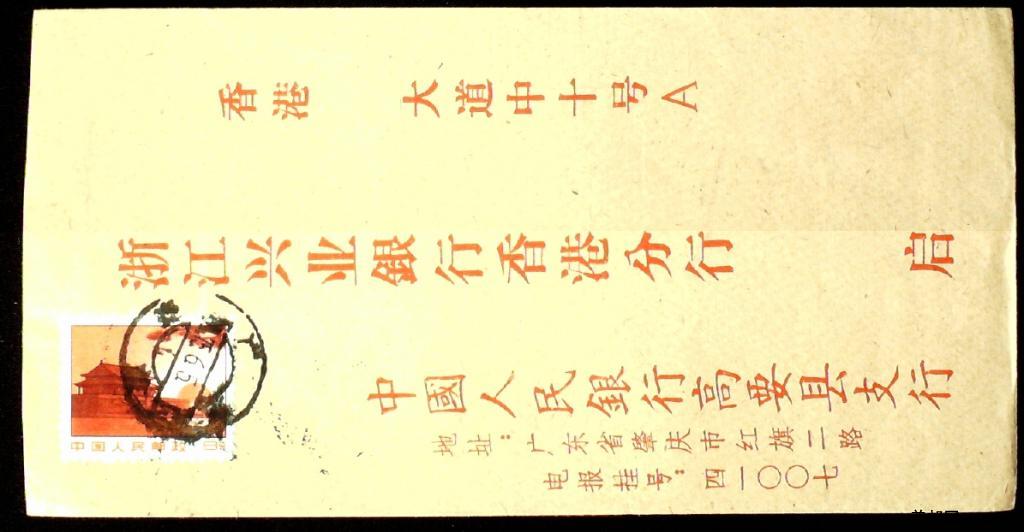 香港 大道中十号A
浙江兴业銀行香港分行 启
中國人民銀行高要县支行
地址：广东省肇庆市红旗二路
电报挂号：四一〇〇七
中国人民邮政